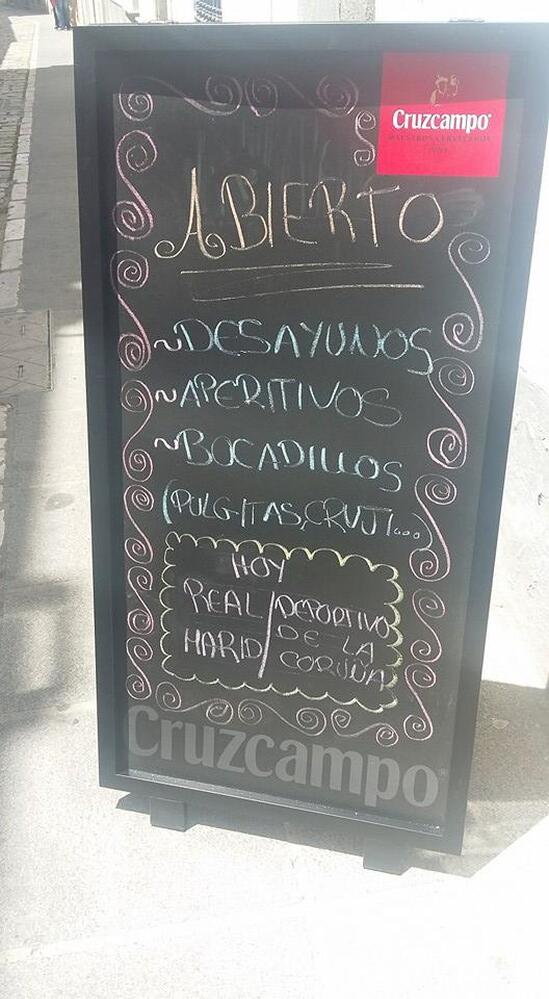 Cruzcampo
ABIERTO
~DESAYUNOS
~APERITIVOS
~BOCADILLOS
(PULGITAS,CRUJI...)
HOY
REAL / DEPORTIVO
MARID / DE LA
CORUÑA
Cruzcampo